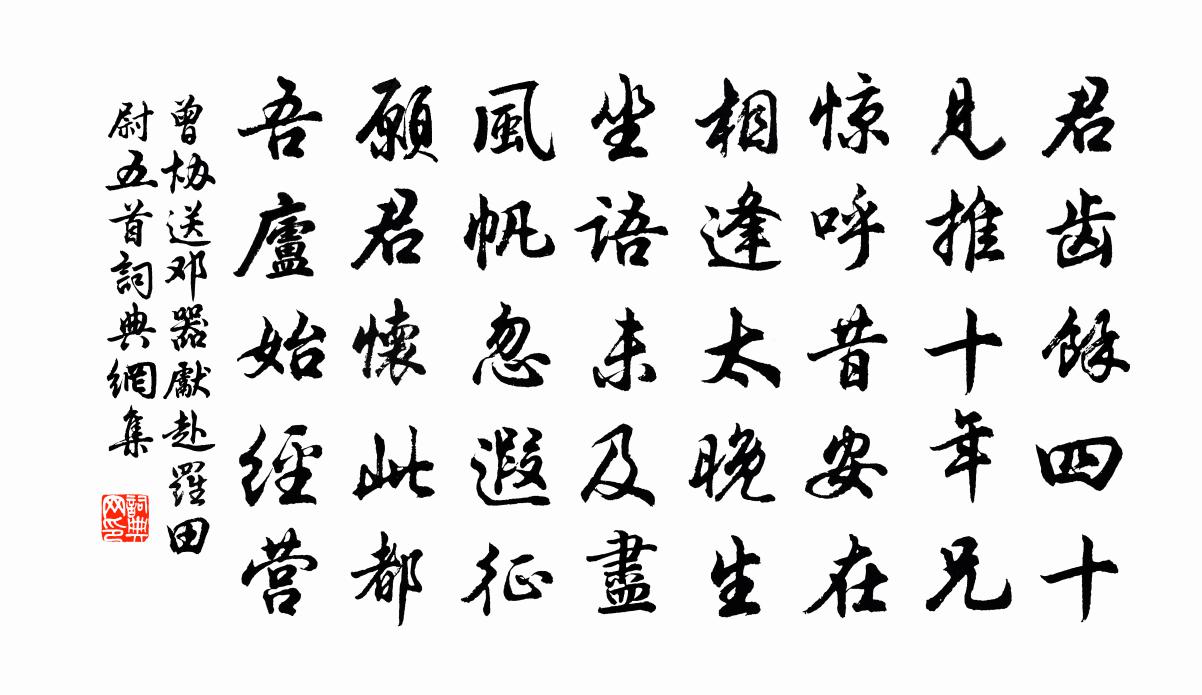 君齿餘四十
見推十年兄
惊呼昔安在
相逢太晚生
坐语未及盡
風帆忽遐征
願君懷此都
吾廬始經营
曾协送邓器獻赴羅田
尉五首詞典網集
詞典网印